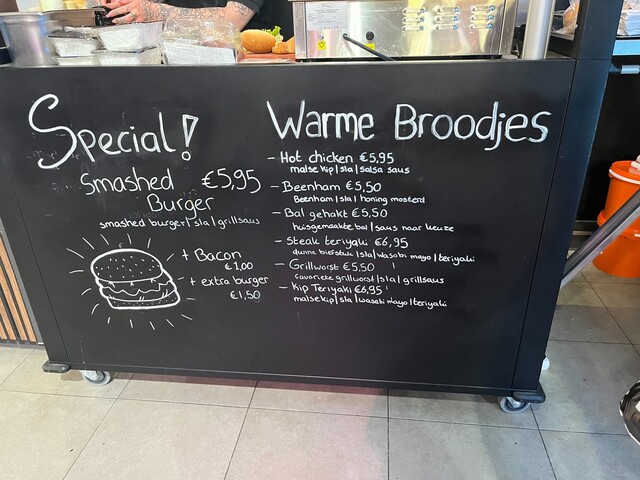 Special!
Smashed €5,95
Burger
smashed burger/sla/grillsaus
+ Bacon
€1,00
+ extra burger
€1,50
Warme Broodjes
- Hot chicken €5,95
malse kip/sla/salsa saus
- Beenham €5,50
Beenham/sla/honing mosterd
- Bal gehakt €5,50
huisgemaakte bal/saus naar keuze
- Steak teriyaki €6,95
dunne biefstuk/sla/wasabi mayo/teriyaki
- Grillworst €5,50
favoriete grillworst/sla/grillsaus
- Kip Teriyaki €6,95
malse kip/sla/wasabi mayo/teriyaki